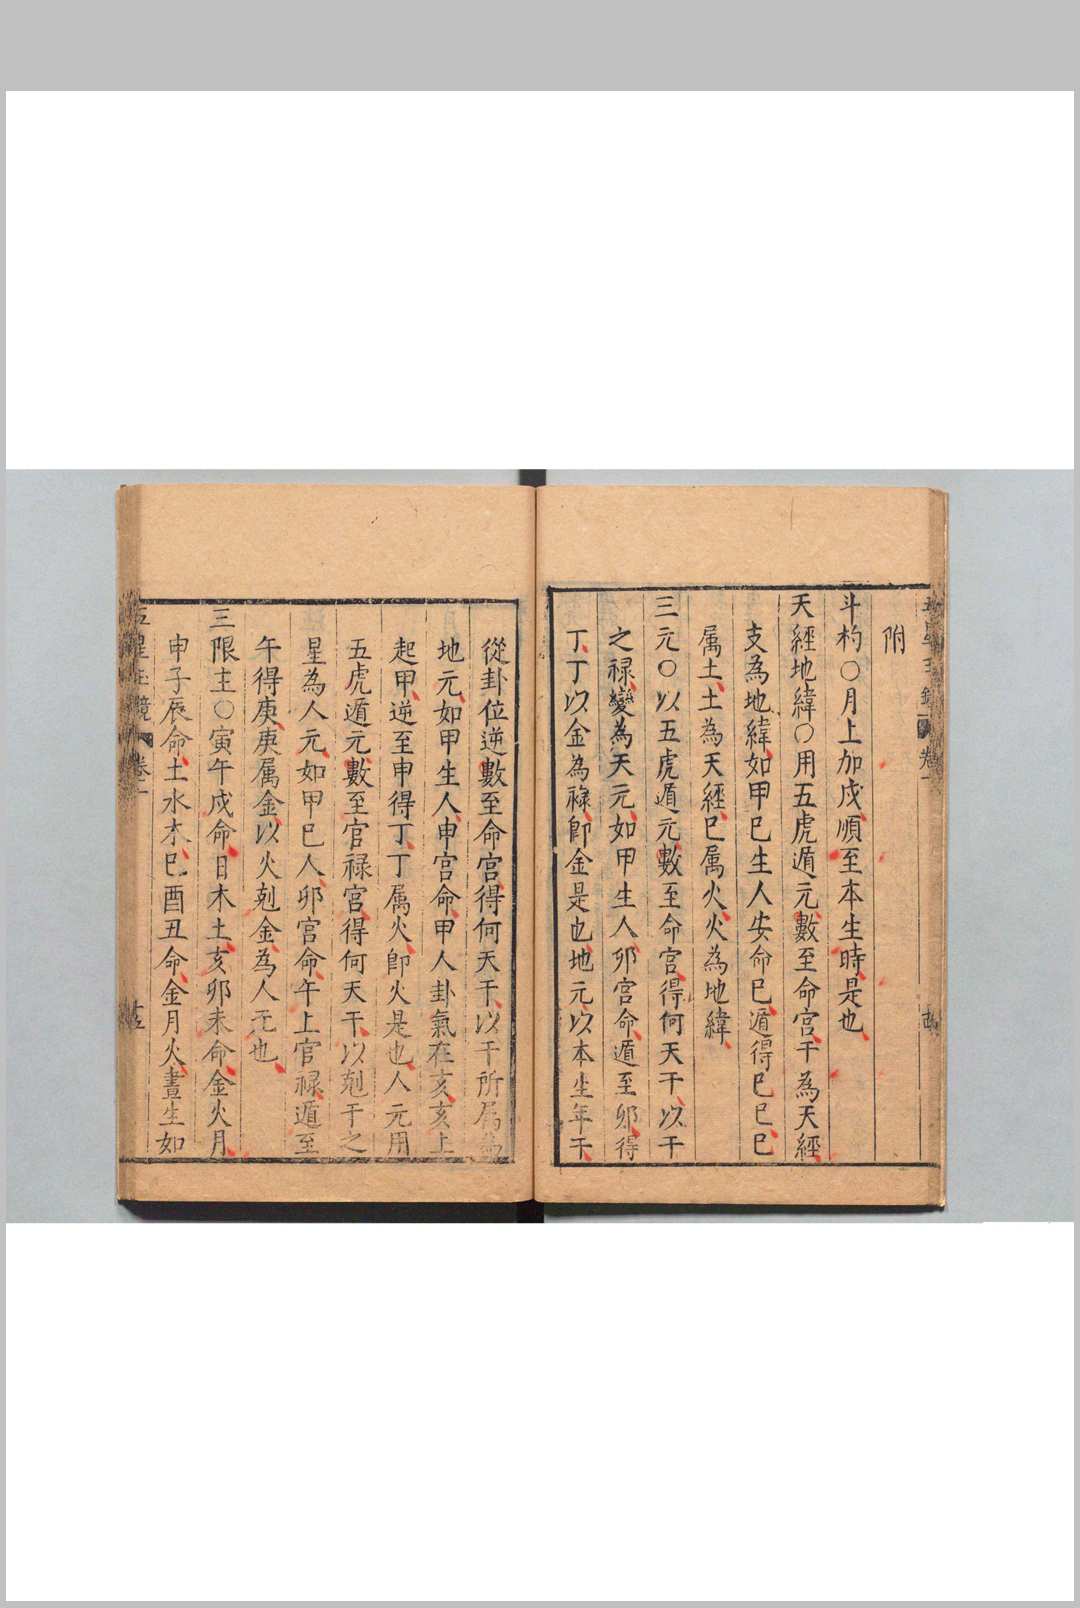 附
斗杓○月上加戌順至本生時是也
天經地緯○用五虎遁元數至命宫干為天經
支為地緯如甲巳生人安命巳遁得巳巳巳
属土土為天經巳属火火為地緯
三元○以五虎遁元數至命宫得何天干以干
之禄變為天元如甲生人卯宫命遁至卯得
丁丁以金為禄卽金是也地元以本生年干
從卦位逆數至命宫得何天干以干所属為
地元如甲生人申宫命甲人卦氣在亥亥上
起甲逆至申得丁丁属火卽火是也人元用
五虎遁元數至官禄宫得何天干以剋干之
星為人元如甲巳人卯宫命午上官禄遁至
午得庚庚属金以火剋金為人元也
三限主○寅午戌命日木土亥卯未命金火月
申子辰命土水木巳酉丑命金月火晝生如
五星玉鏡 卷二